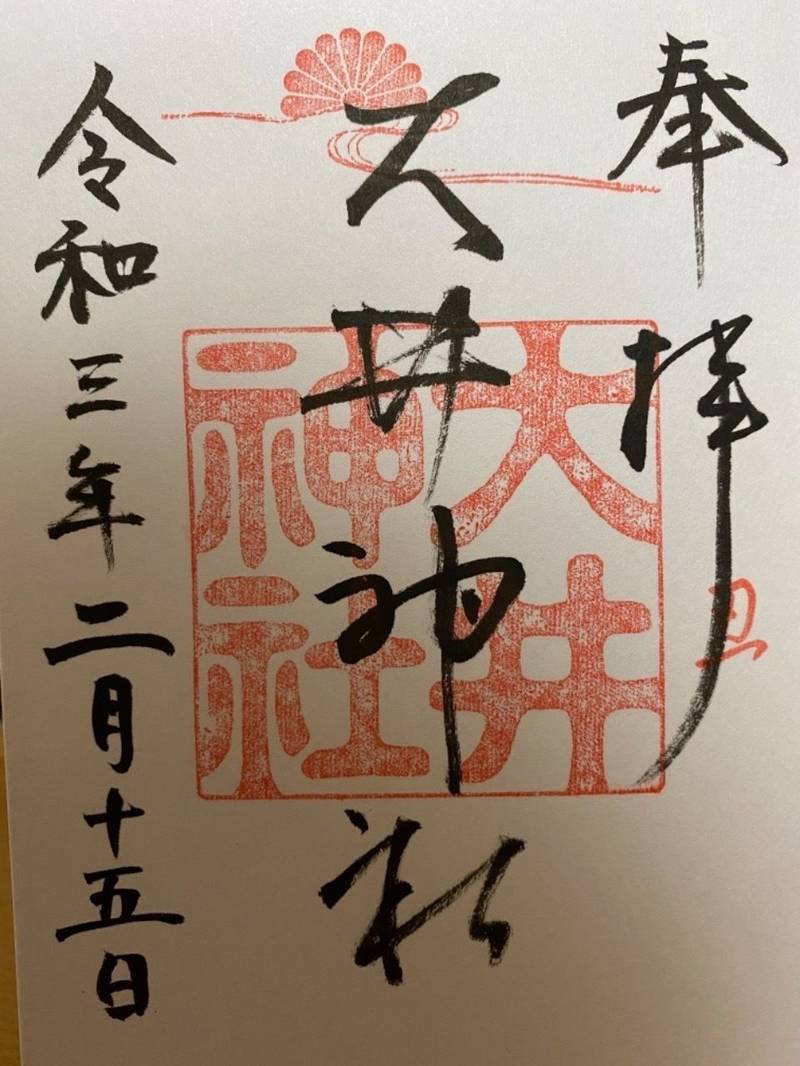 奉拝
丑
大井神社
大井
神社
令和三年二月十五日